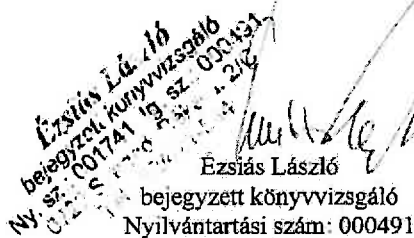 Ézsiás László
bejegyzett könyvvizsgáló
Ny. sz. 001741 Ig. sz. 000491
Ézsiás László
bejegyzett könyvvizsgáló
Nyilvántartási szám: 000491